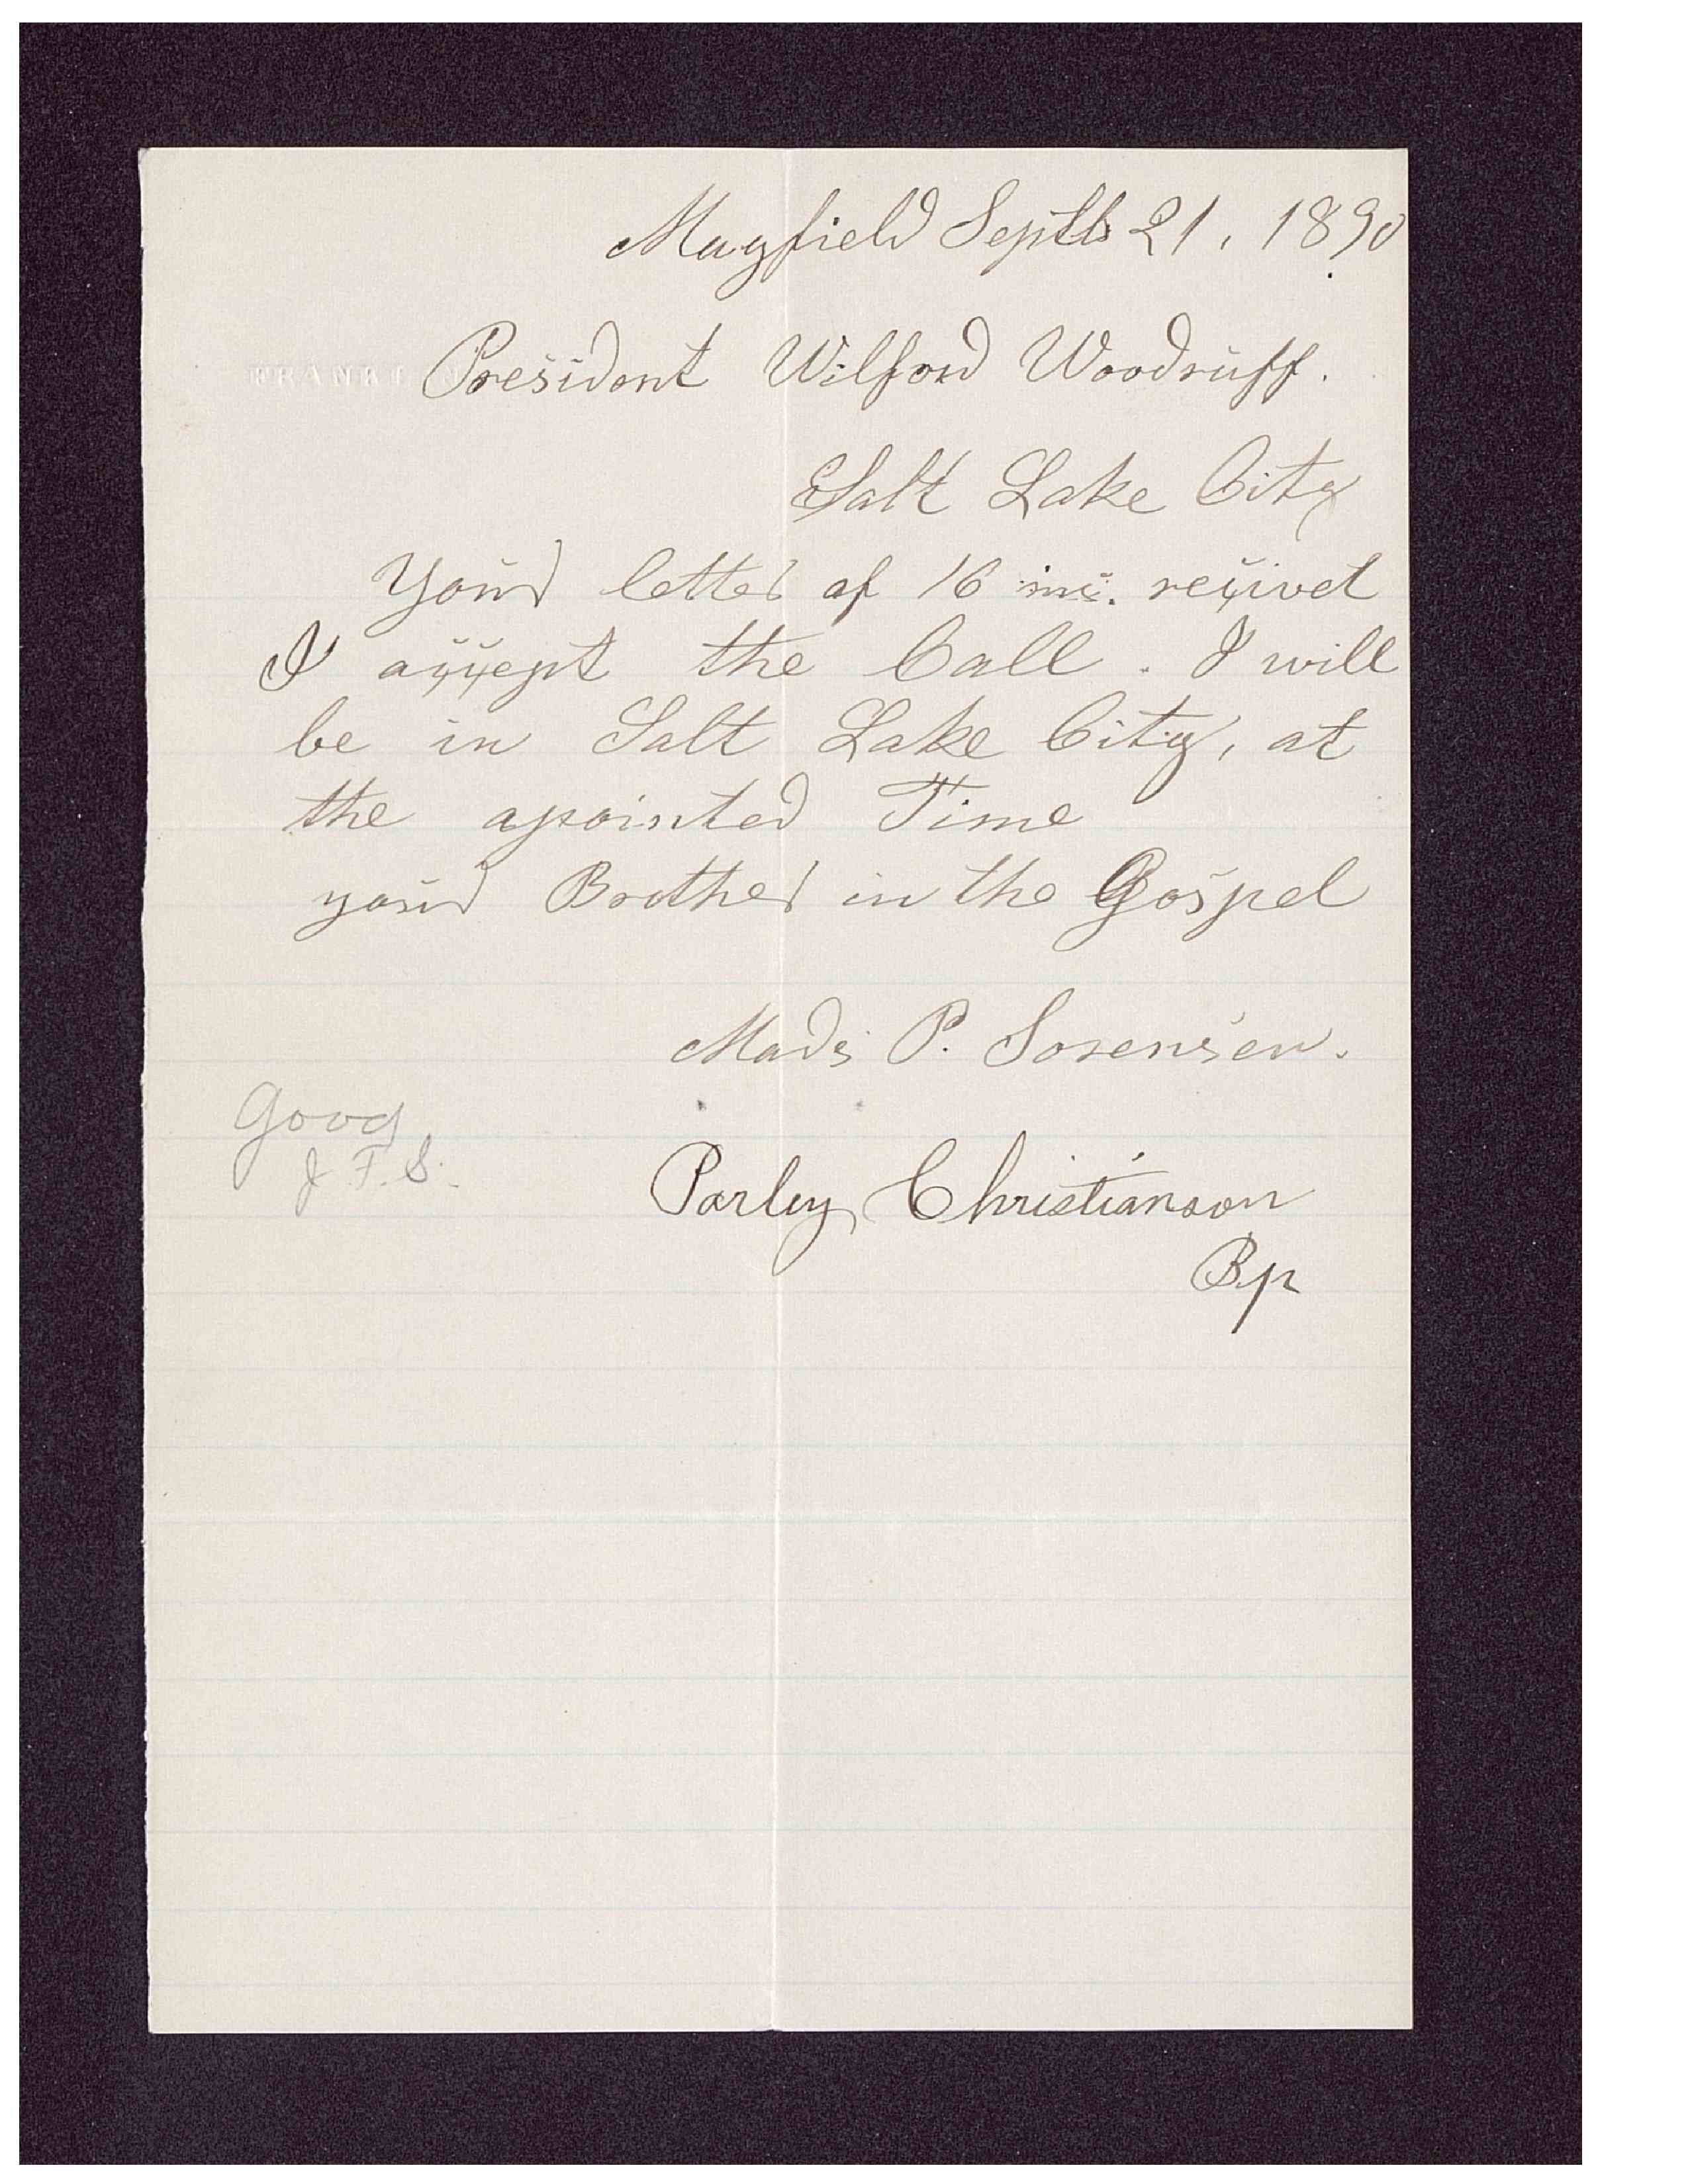 Mayfield Septb 21, 1890
President Wilford Woodruff.
FRANKL
Salt Lake City
Your letter of 16 ins. reçivet
I aççept the Call. I will
be in Salt Lake City, at
the apointed Time
your Brother in the Gospel
Mads P. Sorensen.
Good
J. F. S.
Parley Christianson
Bp